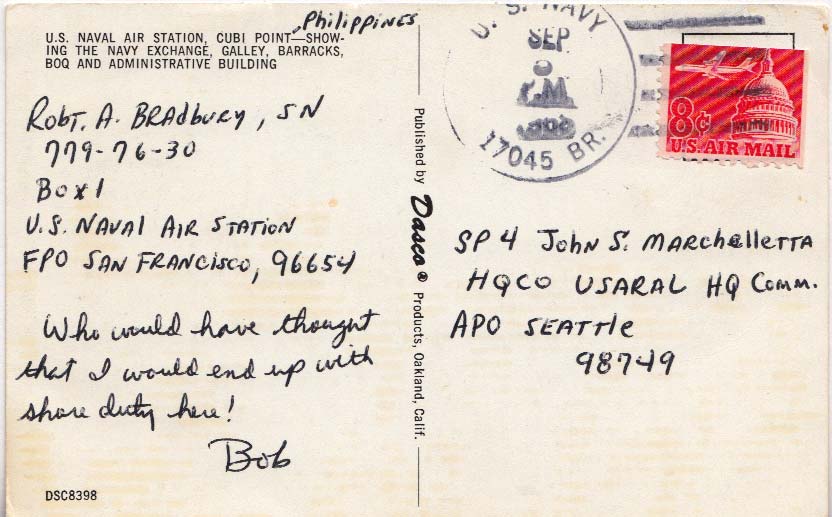 Philippines
U.S. NAVAL AIR STATION, CUBI POINT—SHOW-
ING THE NAVY EXCHANGE, GALLEY, BARRACKS,
BOQ AND ADMINISTRATIVE BUILDING
Robt. A. Bradbury, SN
779-76-30
Box 1
U.S. Naval Air Station
FPO San Francisco, 96654
Who would have thought
that I would end up with
shore duty here!
Bob
DSC8398
Published by Dasco® Products, Oakland, Calif.
U. S. NAVY
SEP
P.M
17045 BR.
8¢
U.S. AIR MAIL
SP4 John S. Marchelletta
HQCO USARAL HQ Comm.
APO Seattle
98749